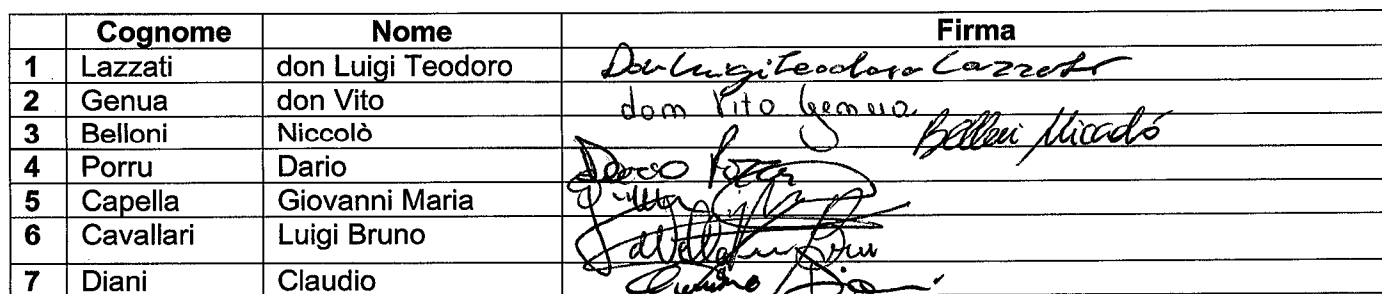 Cognome Nome Firma
1 Lazzati don Luigi Teodoro Don Luigi Teodoro Lazzati
2 Genua don Vito don Vito Genua
3 Belloni Niccolò Belloni Niccolò
4 Porru Dario
5 Capella Giovanni Maria
6 Cavallari Luigi Bruno
7 Diani Claudio Claudio Diani